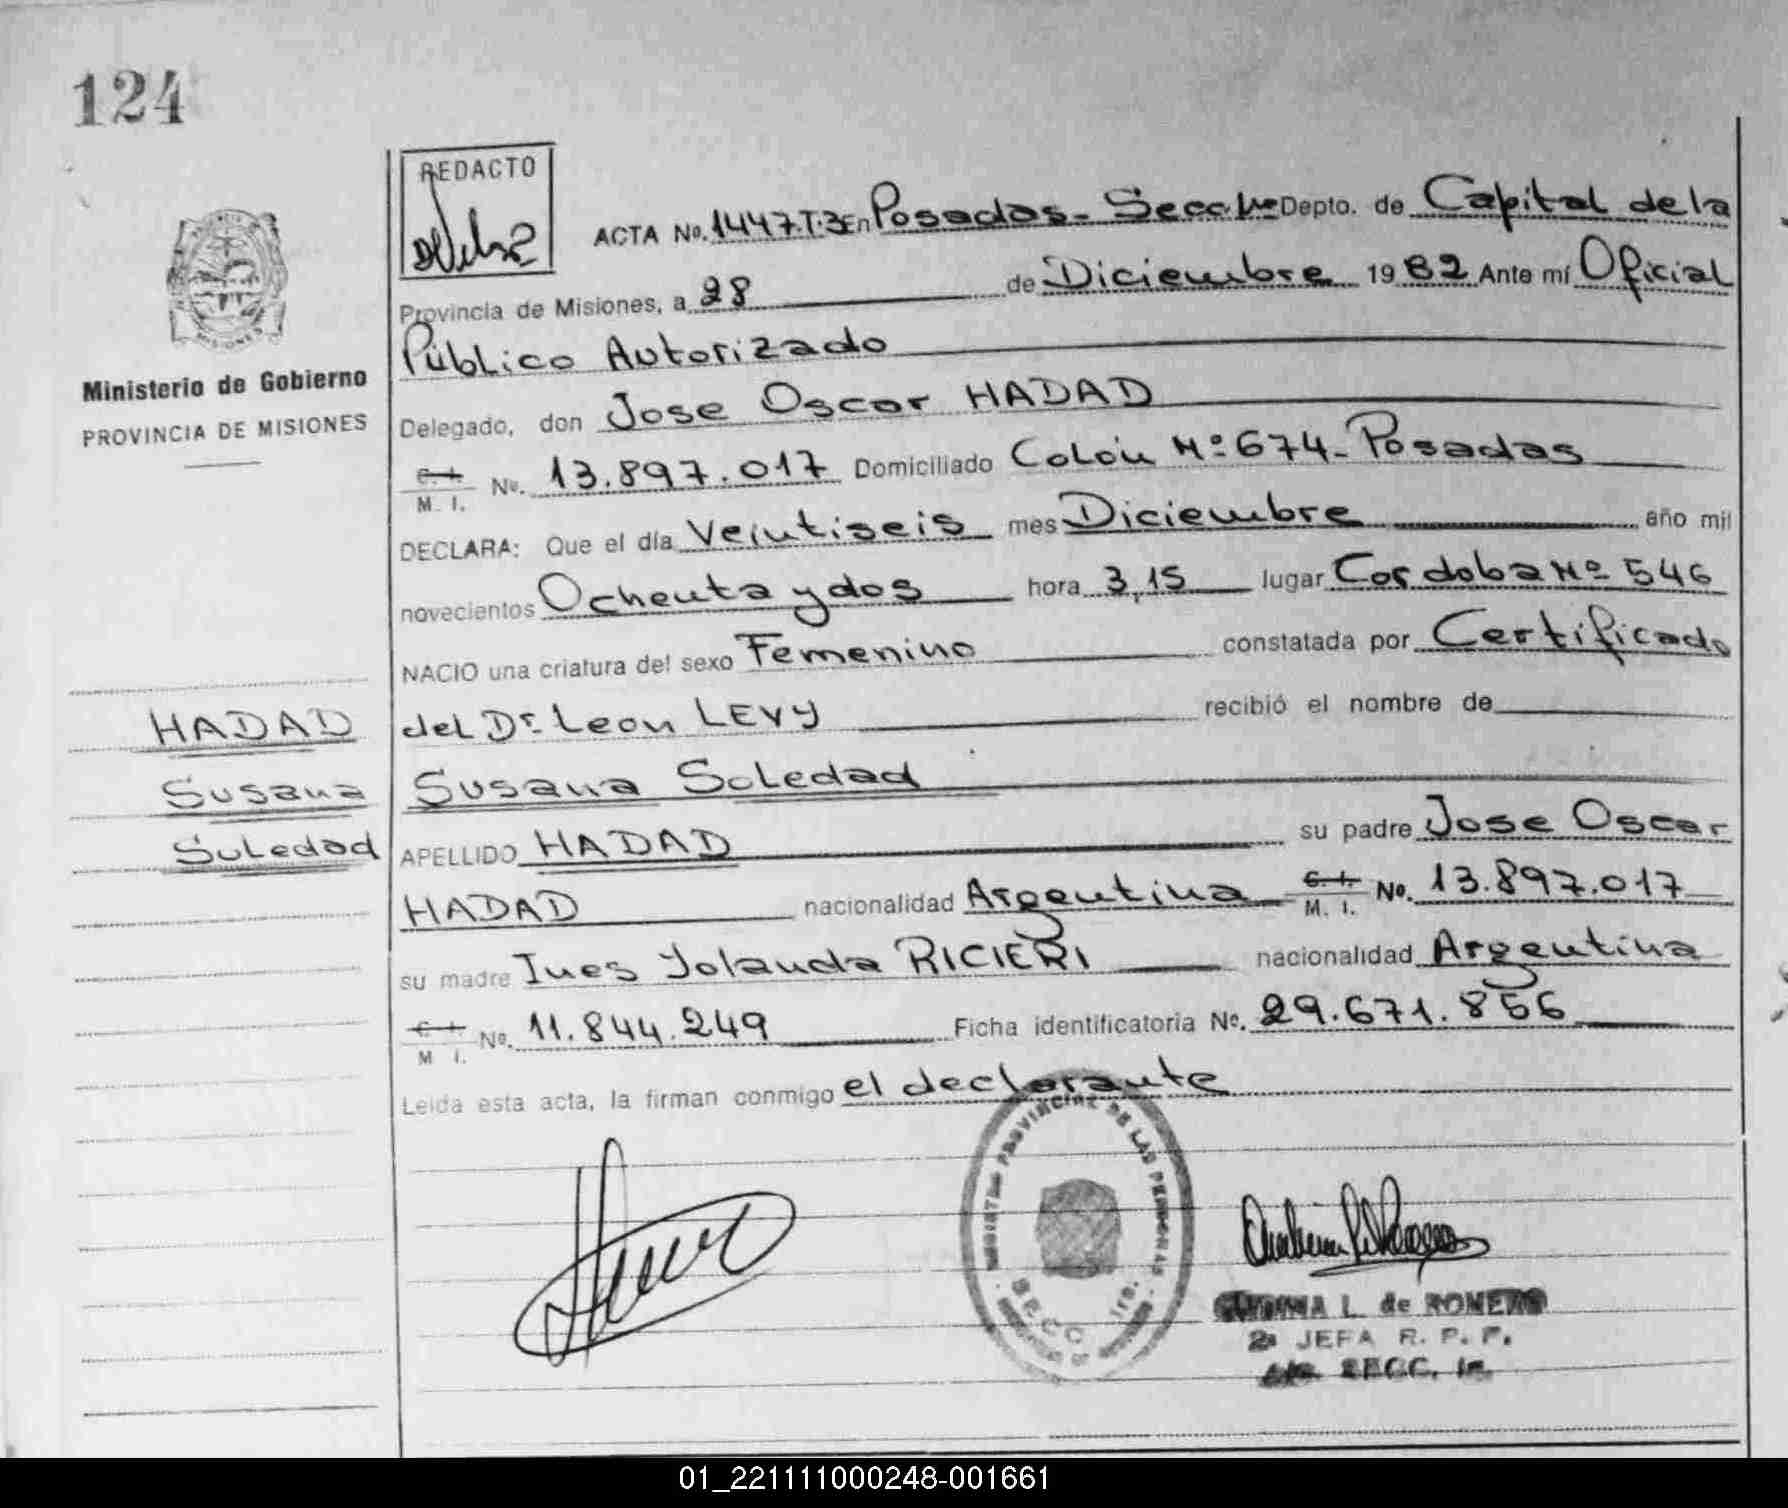 124
REDACTO
ACTA No. 1447.T.3 En Posadas - Secc. 1ra Depto. de Capital de la
Provincia de Misiones, a 28 de Diciembre 1982 Ante mí Oficial
Público Autorizado
Ministerio de Gobierno
PROVINCIA DE MISIONES
Delegado, don Jose Oscar HADAD
C. I. M. I. No. 13.897.017 Domiciliado Colón Nº 674 - Posadas
DECLARA: Que el día Veintiseis mes Diciembre año mil
novecientos Ochenta y dos hora 3,15 lugar Cordoba Nº 546
NACIO una criatura del sexo Femenino constatada por Certificado
del Dr. Leon LEVY recibió el nombre de
HADAD
Susana
Soledad
Susana Soledad
APELLIDO HADAD su padre Jose Oscar
HADAD nacionalidad Argentina C. I. M. I. No. 13.897.017
su madre Ines Yolanda RICIERI nacionalidad Argentina
C. I. M I. No. 11.844.249 Ficha identificatoria No. 29.671.856
Leída esta acta, la firman conmigo el declarante
PROVINCIAL DE LAS PERSONAS
SECC. 1ra.
L. de ROMERO
2a JEFA R. P. P.
SECC. 1a.
MISIONES
01_221111000248-001661